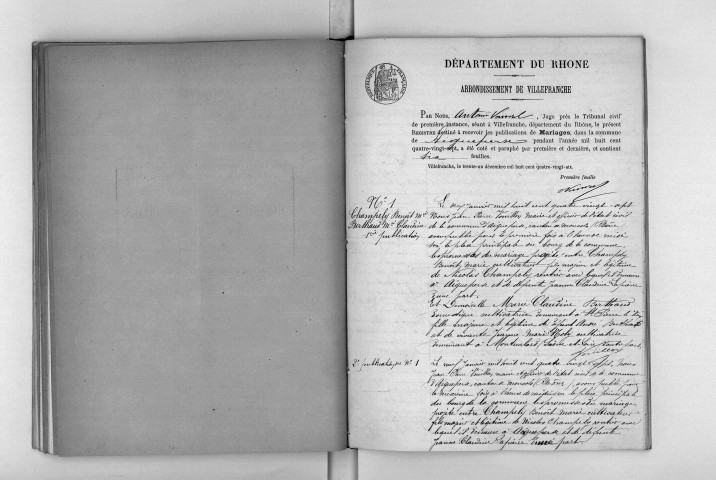 DÉPARTEMENT DU RHONE
ARRONDISSEMENT DE VILLEFRANCHE
PAR NOUS, , Juge près le Tribunal civil
de première instance, séant à Villefranche, département du Rhône, le présent
REGISTRE destiné à recevoir les publications de Mariages, dans la commune
de Aigueperse pendant l'année mil huit cent
quatre-vingt- , a été coté et paraphé par première et dernière, et contient
six feuilles.
Villefranche, le trente-un décembre mil huit cent quatre-vingt-six.
Première feuille
N° 1
Champely Benoit Mie
Berthaud Mie Claudine
1re publication
Le neuf janvier mil huit cent quatre vingt-sept
Nous Jean Pierre maire et officier de l'état civil
de la commune d'Aigueperse, canton de monsols (Rhône)
avons publié pour la première fois à l'heure de midi
sur la place principale du bourg de la commune
la promesse de mariage projeté entre Champely
Benoît Marie cultivateur fils majeur et légitime
de Nicolas Champely rentier avec lequel il demeure
à Aigueperse et de défunte Jeanne Claudine Lapierre
d'une part.
Et Demoiselle Marie Claudine Berthaud
domestique cultivatrice demeurant à St Pierre
fille majeure et légitime de défunt Berthaud
et de vivante Jeanne Marie cultivatrice
demeurant à Saône et Loire d'autre part.
2e publication N° 1
Le neuf janvier mil huit cent quatre vingt sept, Nous
Jean Pierre maire et officier de l'état civil de la commune
d'Aigueperse, canton de monsols (Rhône) avons publié pour
la fois à l'heure de midi sur la place principale
du bourg de la commune la promesse de mariage
projeté entre Champely Benoît Marie cultivateur
fils majeur et légitime de Nicolas Champely rentier avec
lequel il demeure à Aigueperse et de défunte
Jeanne Claudine Lapierre d'une part